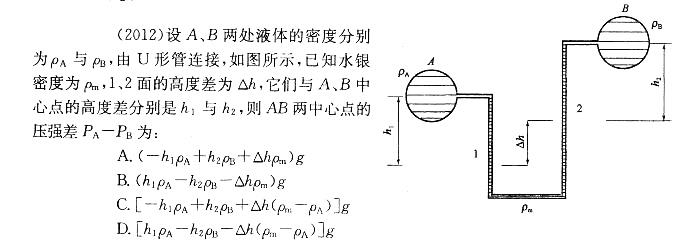 (2012)设 A、B 两处液体的密度分别
为 ρA 与 ρB,由 U 形管连接,如图所示,已知水银
密度为 ρm,1、2 面的高度差为 Δh,它们与 A、B 中
心点的高度差分别是 h1 与 h2,则 AB 两中心点的
压强差 PA－PB 为:
A. (－h1ρA＋h2ρB＋Δhρm)g
B. (h1ρA－h2ρB－Δhρm)g
C. [－h1ρA＋h2ρB＋Δh(ρm－ρA)]g
D. [h1ρA－h2ρB－Δh(ρm－ρA)]g
B
ρB
A
ρA
h2
2
h1
Δh
1
ρm